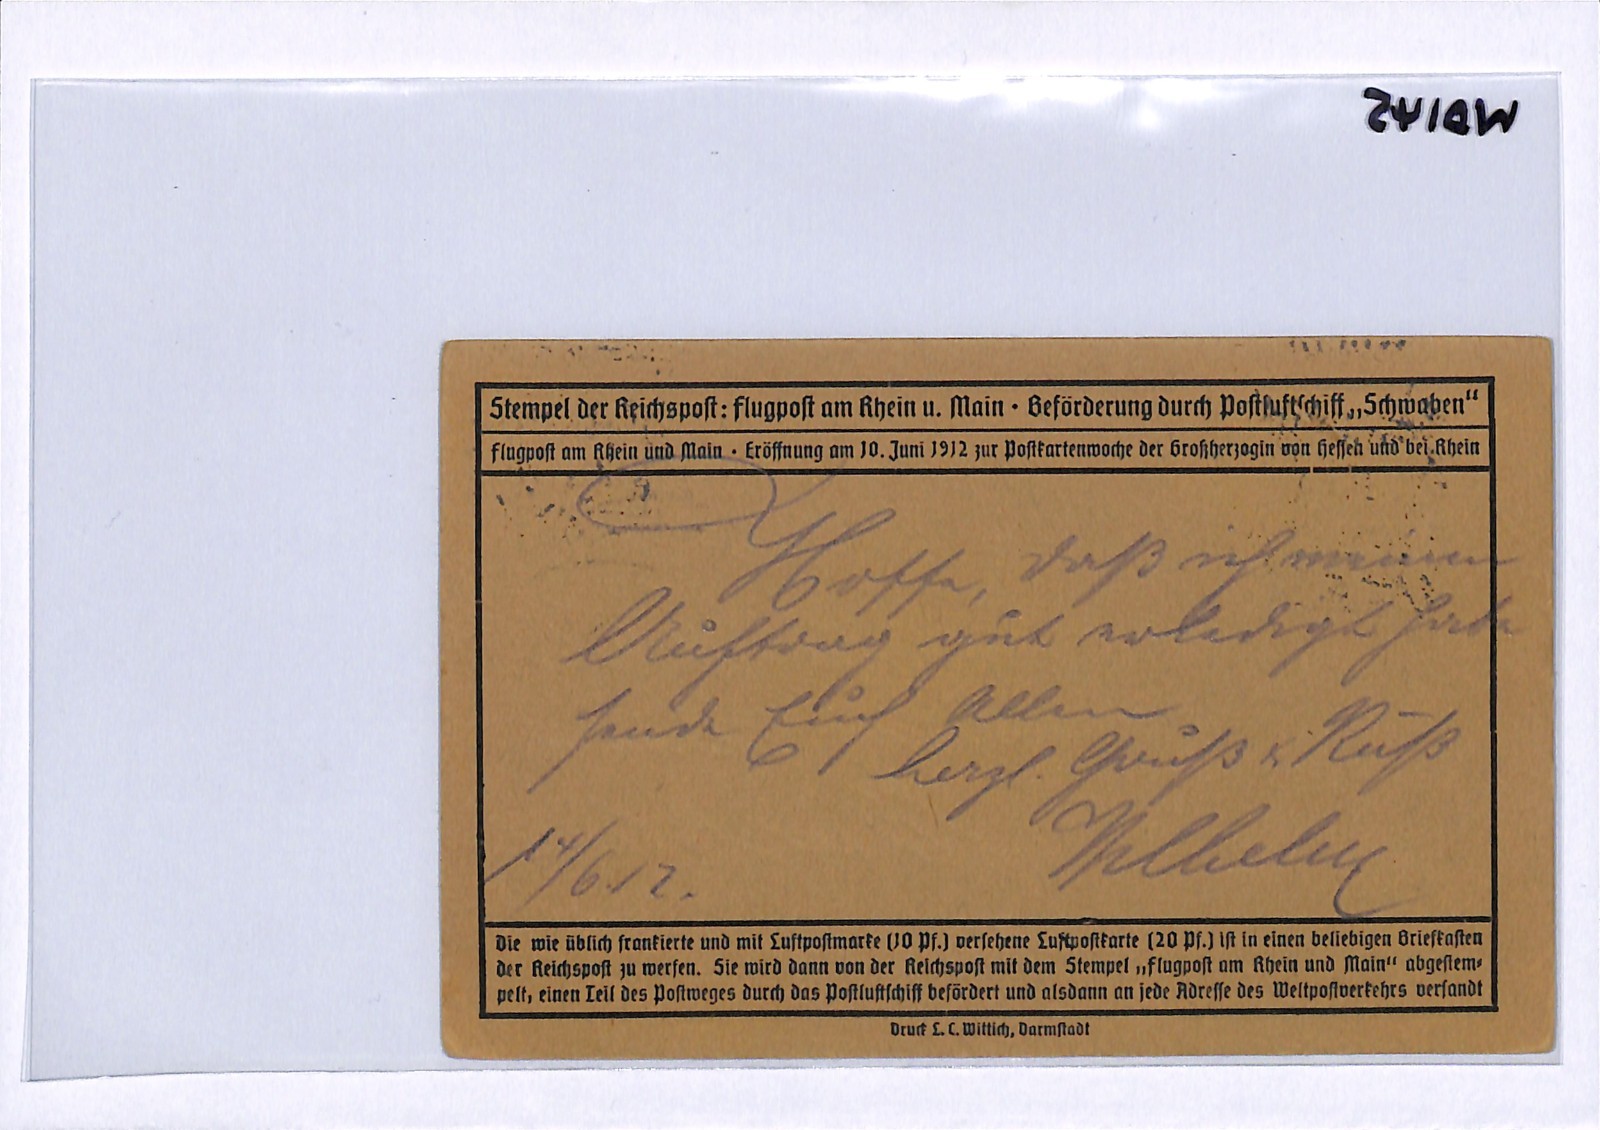 WD145
Stempel der Reichspost: Flugpost am Rhein u. Main · Beförderung durch Postluftschiff „Schwaben“
Flugpost am Rhein und Main · Eröffnung am 10. Juni 1912 zur Postkartenwoche der Großherzogin von Hessen und bei Rhein
Hoffe, daß ich meinen
Auftrag gut erledigt habe
sende Euch Allen
herzl. Gruß & Kuß
Wilhelm
14/6.12.
Die wie üblich frankierte und mit Luftpostmarke (10 Pf.) versehene Luftpostkarte (20 Pf.) ist in einen beliebigen Briefkasten
der Reichspost zu werfen. Sie wird dann von der Reichspost mit dem Stempel „Flugpost am Rhein und Main“ abgestem-
pelt, einen Teil des Postweges durch das Postluftschiff befördert und alsdann an jede Adresse des Weltpostverkehrs versandt
Druck L. C. Wittich, Darmstadt